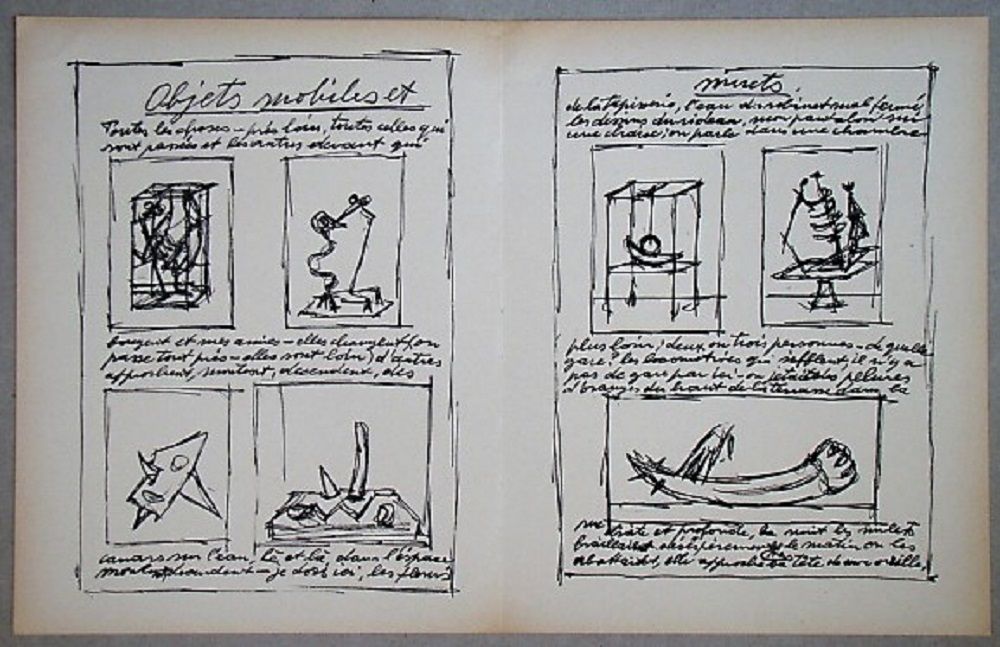 Objets mobiles et
Toutes les choses - près, loin, toutes celles qui
sont passées et les autres, devant, qui
bougent et mes amies - elles changent (on
passe tout près - elles sont loin) d'autres
approchent, montent, descendent, des
canars sur l'eau, là et là dans l'espace
montent, descendent - je dors ici, les fleurs
muets
de la tapisserie, l'eau du robinet mal fermé,
les dessins du rideau, mon pantalon sur
une chaise, on parle dans une chambre
plus loin, deux ou trois personnes - de quelle
gare? les locomotives qui sifflent, il n'y a
pas de gare par ici - on jetait des pelures
d'oranges du haut de la terrasse dans la
rue étroite et profonde, la nuit les mulets
braillaient désespérément, le matin on les
abattait, elle approche sa tête de mon oreille,